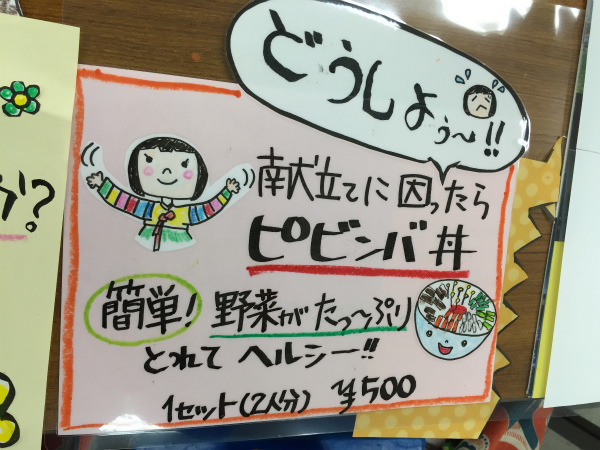 どうしよぅ〜!!
献立てに困ったら
ピビンバ丼
簡単!野菜がたっ〜ぷり
とれてヘルシー!!
1セット(2人分) ¥500
か?